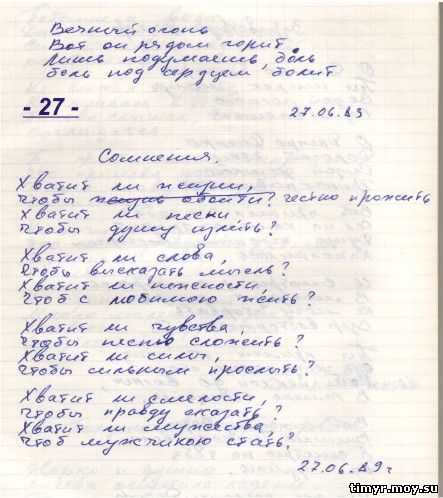 Вечный огонь
Вот он рядом горит
Лишь подумаешь, боль
боль под сердцем болит
- 27 -
27.06.89
Сомнения.
Хватит ли жизни,
Чтобы жизнь обойти? честно прожить
Хватит ли песни,
Чтобы душу излить?
Хватит ли слова,
Чтобы высказать мысль?
Хватит ли нежности,
Чтоб с любимою жить?
Хватит ли чувства,
Чтобы песню сложить?
Хватит ли силы,
Чтобы сильным прослыть?
Хватит ли смелости,
Чтобы правду сказать?
Хватит ли мужества,
Чтоб мужчиною стать?
27.06.89г
timyr.moy.su